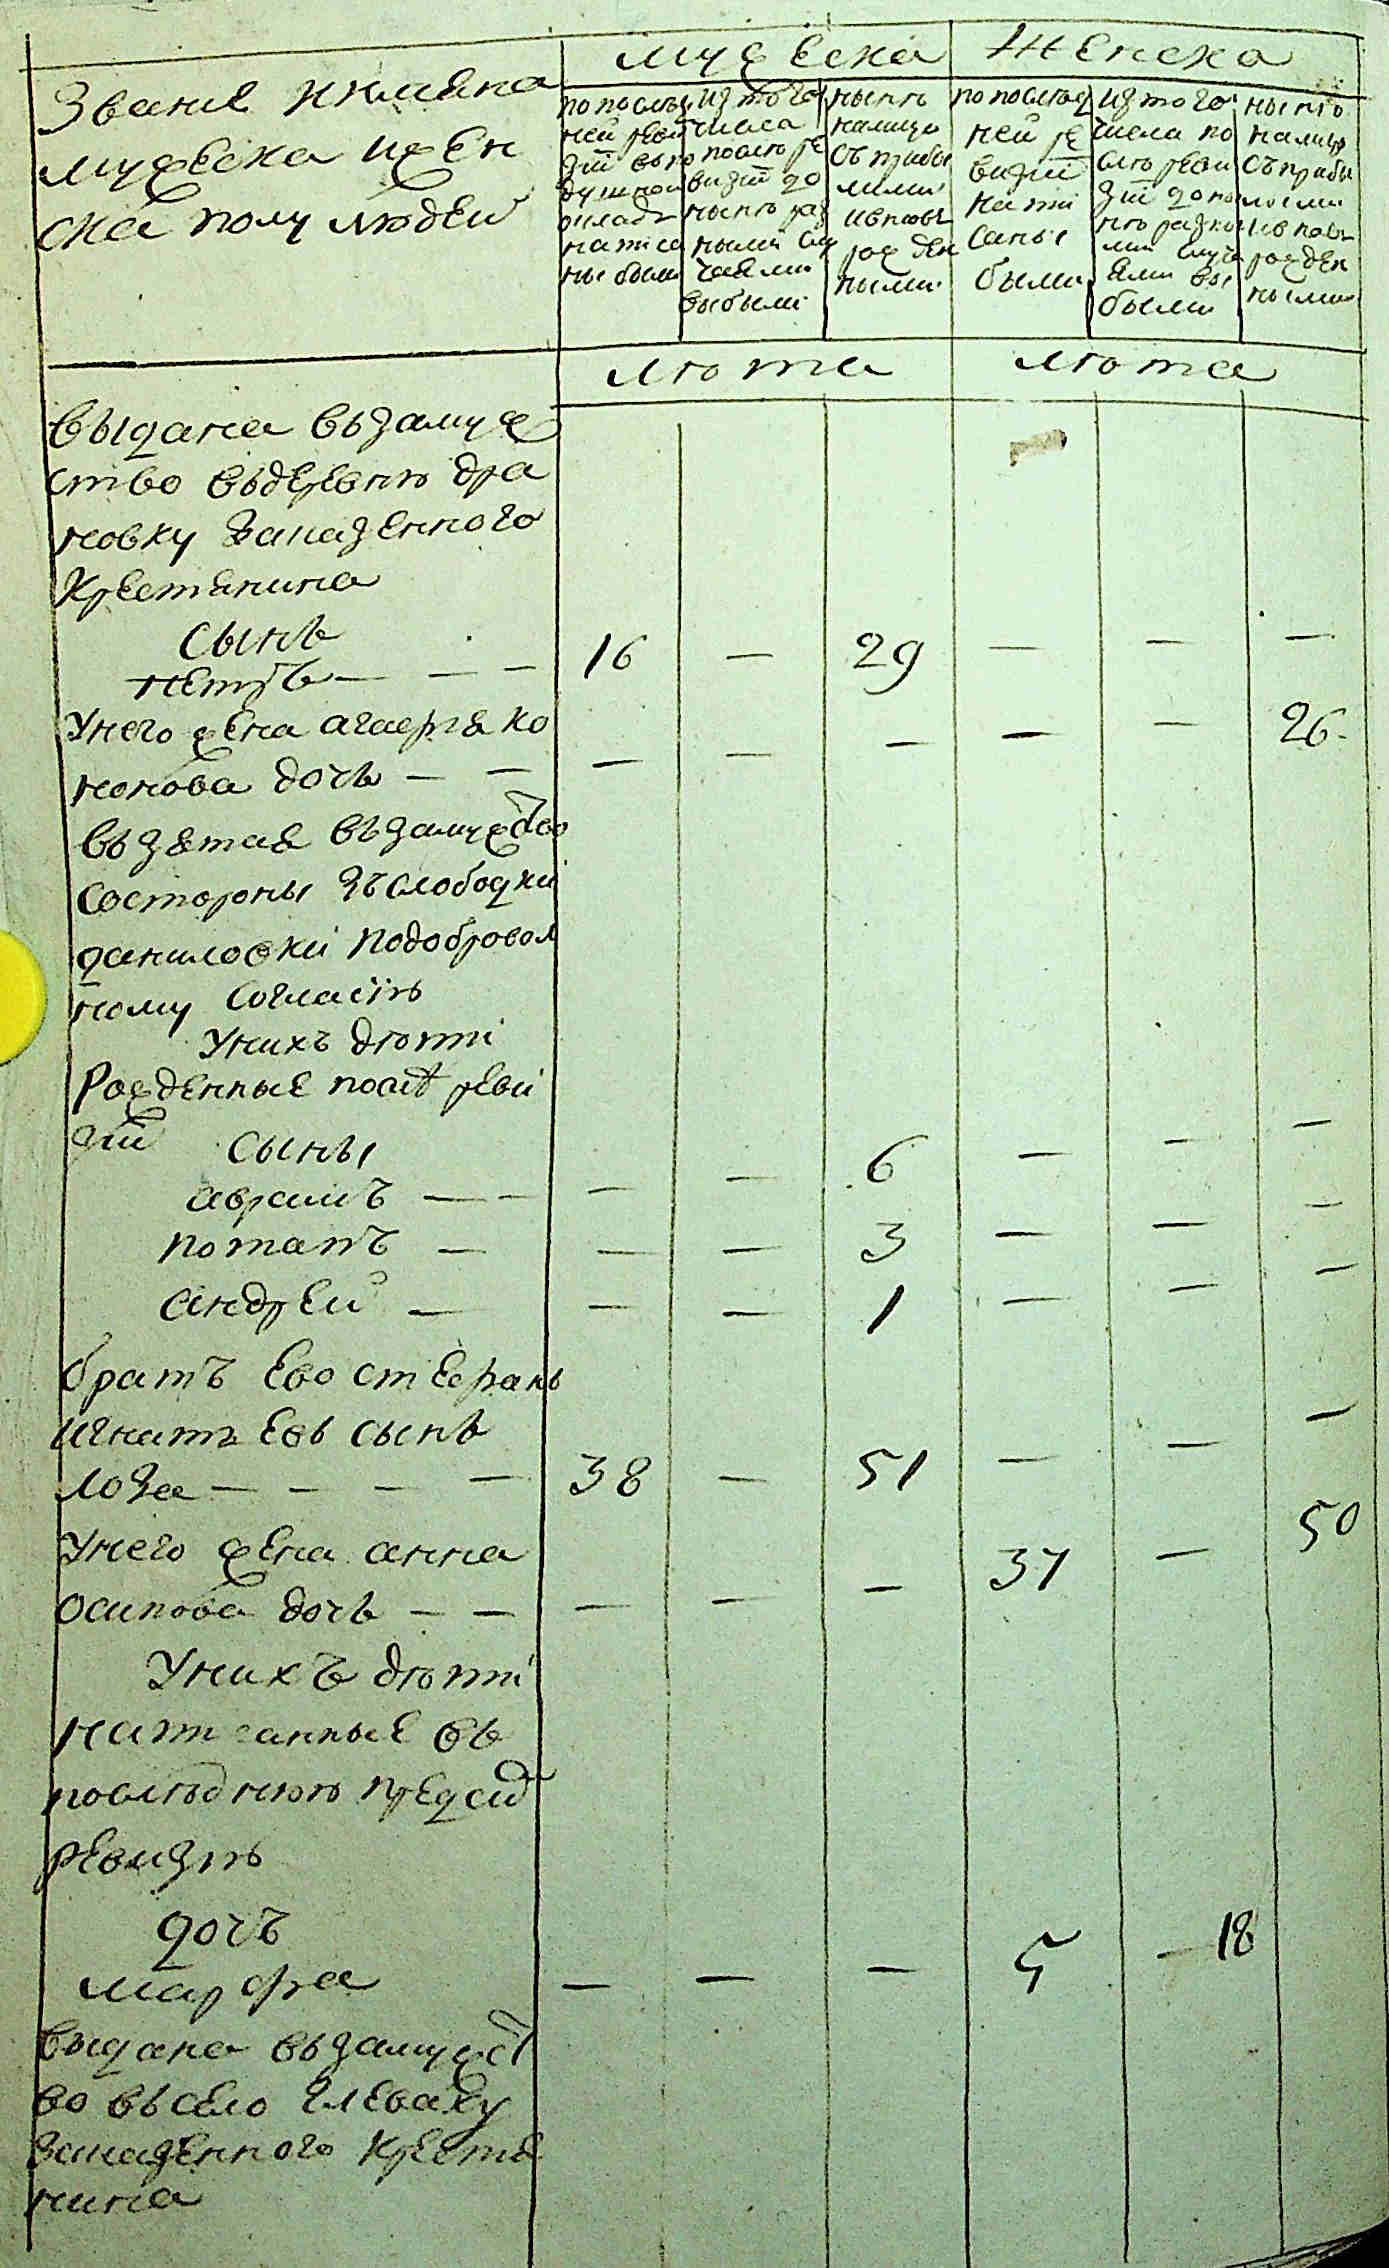 Мужеска Женска
Звание и имяна
мужеска и жен
ска полу людей
по послед
ней реви
зии въ по
душной
окладъ
написа
ны были
из того
числа
после ре
визии до
ныне раз
ными слу
чаями
выбыли
ныне
налицо
съ прибы
лыми
и вновь
рожден
ными
по послед
ней ре
визии
напи
саны
были
из того
числа по
сле реви
зии до ны
не разны
ми случа
ями вы
были
ныне
налицо
съ прибы
лыми
и вновь
рожден
ными
лета лета
выдана въ замуже
ство въ деревню дра
новку за казенного
крестянина
сынъ
петръ — — — 16 — 29 — — —
У него жена агафия ко
нонова дочь — — — — — — — 26
възятая въ замужство
со стороны зъ слободки
даниловки по добровол
ному согласію
У нихъ дети
Рожденные после реви
зии сыны
аврамъ — — — — 6 — — —
потапъ — — — 3 — — —
андрей — — — 1 — — —
братъ ево стефанъ
игнатъевъ сынъ
лоза — — — — 38 — 51 — — —
У него жена анна
осипова дочь — — — — — 37 — 50
У нихъ дети
написанные въ
последнюю пред сей
ревизию
дочъ
марфа — — — 5 — 18
выдана въ замужст
во въ село глеваху
за казенного крестя
нина